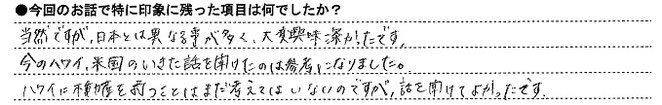 ●今回のお話で特に印象に残った項目は何でしたか?
当然ですが、日本とは異なる事が多く、大変興味深かったです。
今のハワイ、米国のいきた話を聞けたのは参考になりました。
ハワイに不動産を持つことはまだ考えてはいないのですが、話を聞けてよかったです。